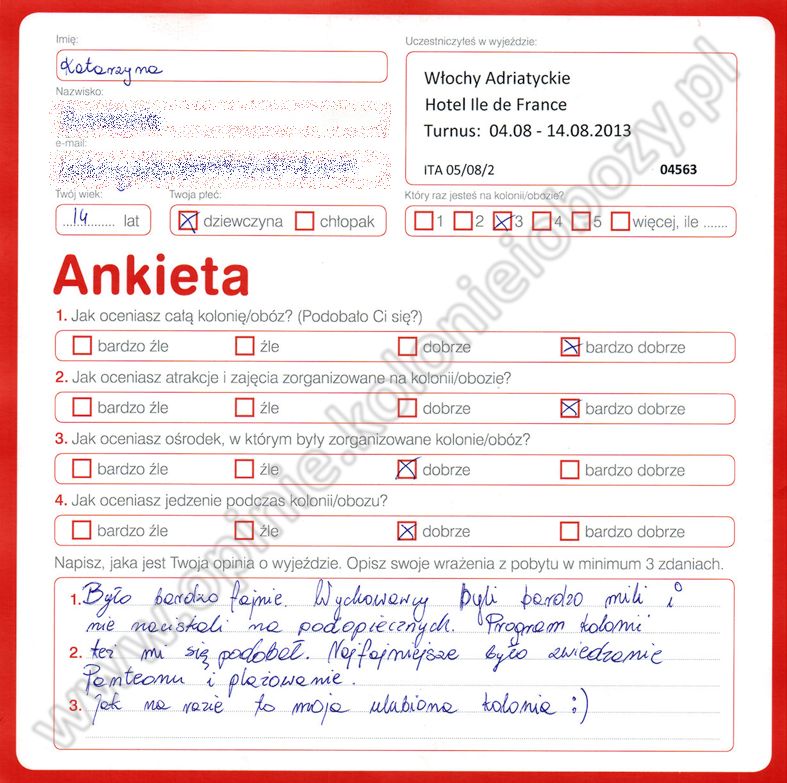 Imię:
Katarzyna
Nazwisko:
e-mail:
Twój wiek:
14 lat
Twoja płeć:
dziewczyna chłopak
Uczestniczyłeś w wyjeździe:
Włochy Adriatyckie
Hotel Ile de France
Turnus: 04.08 - 14.08.2013
ITA 05/08/2 04563
Który raz jesteś na kolonii/obozie?
1 2 3 4 5 więcej, ile .......
Ankieta
1. Jak oceniasz całą kolonię/obóz? (Podobało Ci się?)
bardzo źle źle dobrze bardzo dobrze
2. Jak oceniasz atrakcje i zajęcia zorganizowane na kolonii/obozie?
bardzo źle źle dobrze bardzo dobrze
3. Jak oceniasz ośrodek, w którym były zorganizowane kolonie/obóz?
bardzo źle źle dobrze bardzo dobrze
4. Jak oceniasz jedzenie podczas kolonii/obozu?
bardzo źle źle dobrze bardzo dobrze
Napisz, jaka jest Twoja opinia o wyjeździe. Opisz swoje wrażenia z pobytu w minimum 3 zdaniach.
1. Było bardzo fajnie. Wychowawcy byli bardzo mili i
nie naciskali na podopiecznych. Program kolonii
2. też mi się podobał. Najfajniejsze było zwiedzanie
Panteonu i plażowanie.
3. Jak na razie to moja ulubiona kolonia :)
www.opinie.kolonieiobozy.pl